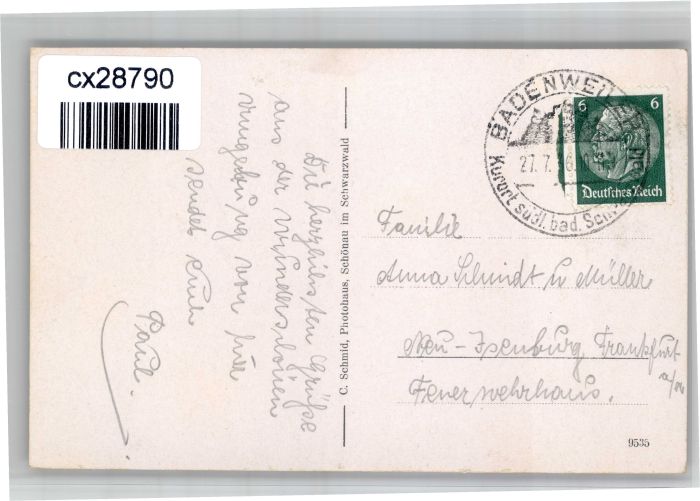 cx28790
Die herzlichsten Grüße
aus der wunderschönen
Umgebung von hier
sendet Euch
Paul.
C. Schmid, Photohaus, Schönau im Schwarzwald
BADENWEIL
27.7.36
Kurort südl. bad. Schw
6 6
Deutsches Reich
Familie
Anna Schmidt u Müller
Neu-Isenburg, Frankfurt
a/M
Feuerwehrhaus.
9535